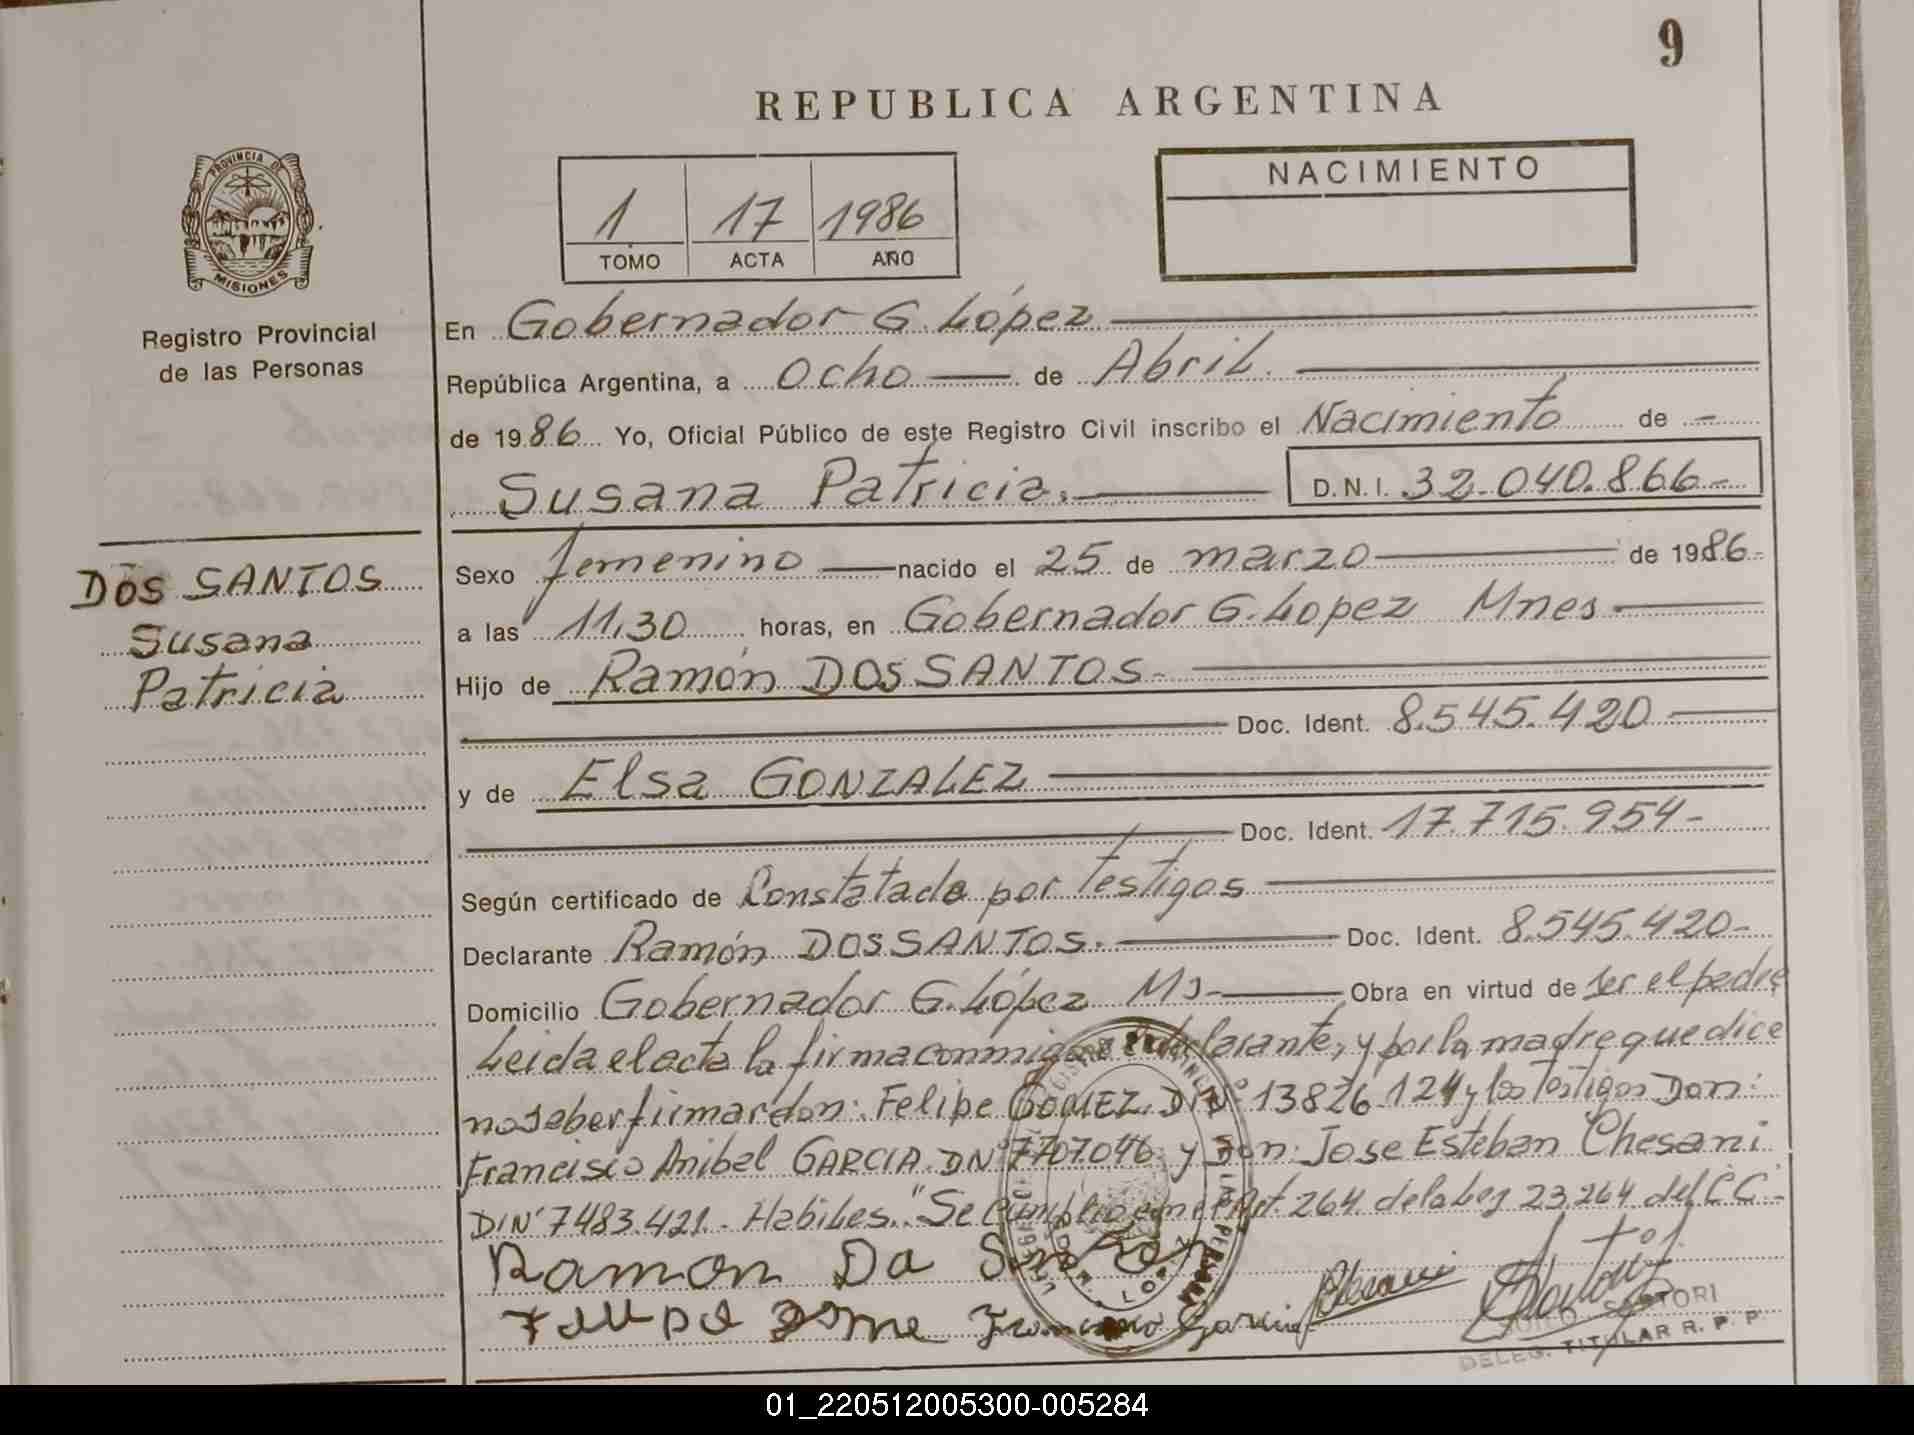 9
REPUBLICA ARGENTINA
PROVINCIA DE
MISIONES
Registro Provincial
de las Personas
1 17 1986
TOMO ACTA AÑO
NACIMIENTO
En Gobernador G. López
República Argentina, a Ocho de Abril.
de 1986 Yo, Oficial Público de este Registro Civil inscribo el Nacimiento de -
Susana Patricia. D.N.I. 32.040.866-
DOS SANTOS
Susana
Patricia
Sexo femenino nacido el 25 de marzo de 1986-
a las 11,30 horas, en Gobernador G. Lopez Mnes
Hijo de Ramón DOS SANTOS-
Doc. Ident. 8.545.420
y de Elsa GONZALEZ
Doc. Ident. 17.715.954-
Según certificado de Constatado por Testigos
Declarante Ramón DOS SANTOS. Doc. Ident. 8.545.420-
Domicilio Gobernador G. López Ms- Obra en virtud de ser el padre
Leida el acta la firma conmigo el declarante, y por la madre que dice
no saber firmar don: Felipe GOMEZ. DNº 13826.124 y los Testigos Don:
Francisco Anibal GARCIA. DNº 7707.046. y Don: Jose Esteban Chesani
DINº 7483.421.- Habiles. "Se cumplio con el Art. 264 de la Ley 23.264 del C.C.-
Ramon Da Santos
Francisco Garcia Chesani
SARTORI
DELEG. TITULAR R. P. P.
01_220512005300-005284